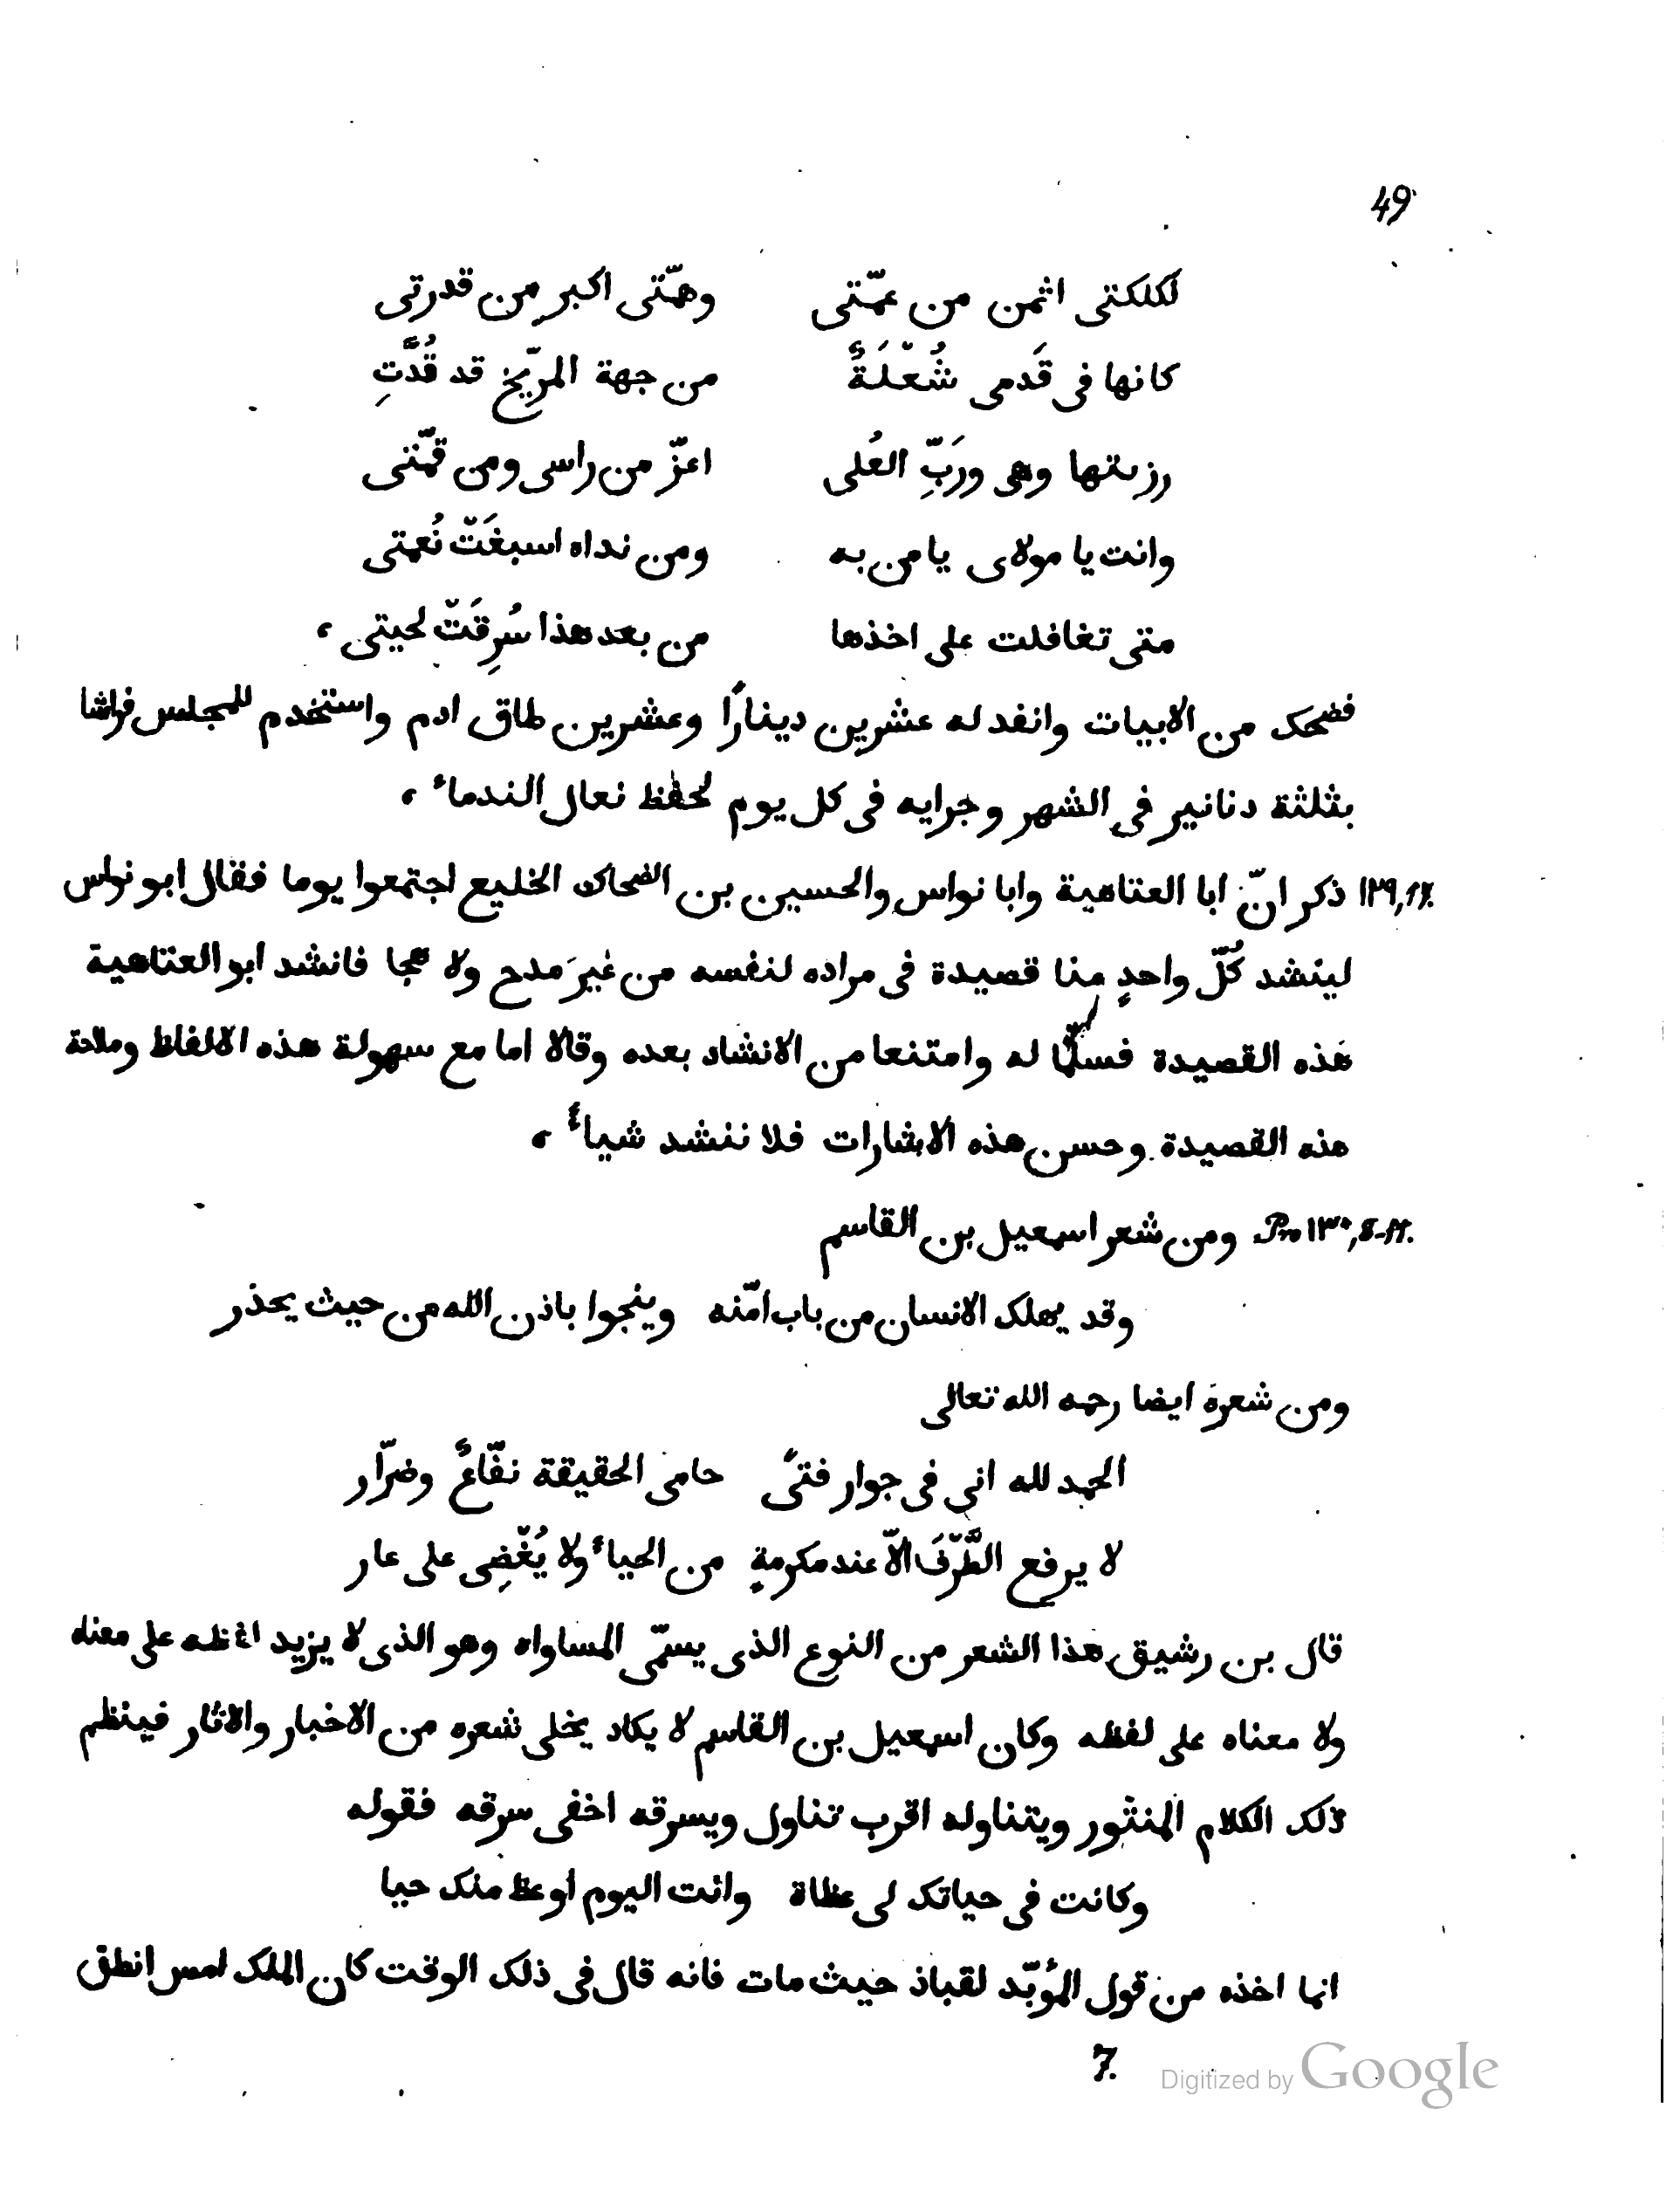 49
لكلكتى اثمن من عمّتى وهمّتى اكبر من قدرتى
كانها فى قَدمى شُعْلَةً من جهة المرّيخ قد قُدَّتِ
وهى ورَبِّ العُلى اعزّ من راسى ومن قمّتى
وانت يا مولاى يا من به ومن نداه اسبغَتْ نُعمتى
متى تغافلت على اخذها من بعد هذا سُرِقَتْ لحيتى ،
فضحك من الابيات وانفد له عشرين دينارًا وعشرين طاق ادم واستخدم للمجلس فراشا
بثلثة دنانير فى الشهر وجرايه فى كل يوم لحفظ نعال الندماء ،
ذكر انّ ابا العتاهية وابا نواس والحسين بن الضحاك الخليع اجتمعوا يوما فقال ابو نواس
لينشد كُلّ واحدٍ منا قصيدة فى مراده لنفسه من غيرَ مدح ولا هجا فانشد ابو العتاهية
هَذه القصيدة فسلّما له وامتنعا من الانشاد بعده وقالا اما مع سهولة هذه الالفاظ وملاحة
هذه القصيدة وحسن هذه الاشارات فلا ننشد شياءً ،
Pro ١٣٠,8-11. ومن شعر اسمعيل بن القاسم
وقد يهلك الانسان من باب امّنه وينجوا باذن الله من حيث يحذر
ومن شعره ايضا رحمه الله تعالى
الحمد لله انى فى جوار فتىً حامى الحقيقة نفّاعٌ وضرّار
لا يرفع الطَّرْفَ الّا عند مكرمةٍ من الحياء ولا يُغْضِى على عار
قال بن رشيق هذا الشعر من النوع الذى يسمّى المساواه وهو الذى لا يزيد على معناه
ولا معناه على لفظه وكان اسمعيل بن القاسم لا يكاد يخلى شعره من الاخبار والاثار فينظم
ذلك الكلام المنثور ويتناوله اقرب تناول ويسرقه اخفى سرقه فقوله
وكانت فى حياتك لى عظاة وانت اليوم اوعظ منك حيا
انما اخذه من قول المُوبّد لقباذ حيث مات فانه قال فى ذلك الوقت كان الملك امس انطق
7.
Digitized by Google